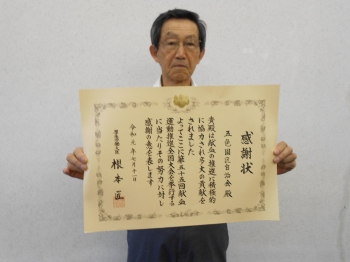 感謝状
五色園区自治会殿
貴殿は献血の推進に積極的
に協力され多大の貢献を
されました
よってここに第五十五回献血
運動推進全国大会を挙行する
に当たりその努力に対し
感謝の意を表します
令和元年七月十一日
厚生労働大臣 根本匠